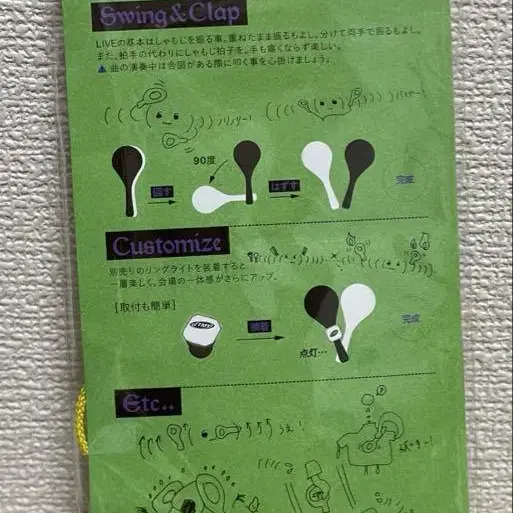 Swing&Clap
LIVEの基本はしゃもじを振る事。重ねたまま振るもよし。分けて両手で振るもよし。
また、拍手の代わりにしゃもじ拍子を。手も痛くならず楽しい。
⚠曲の演奏中は合図がある際に叩く事を心掛けましょう。
ノリノリー!
バイバイー!
90度
回す
はずす
完成
Customize
別売りのリングライトを装着すると
一層楽しく、会場の一体感がさらにアップ。
[取付も簡単]
装着
点灯…
完成
Etc..